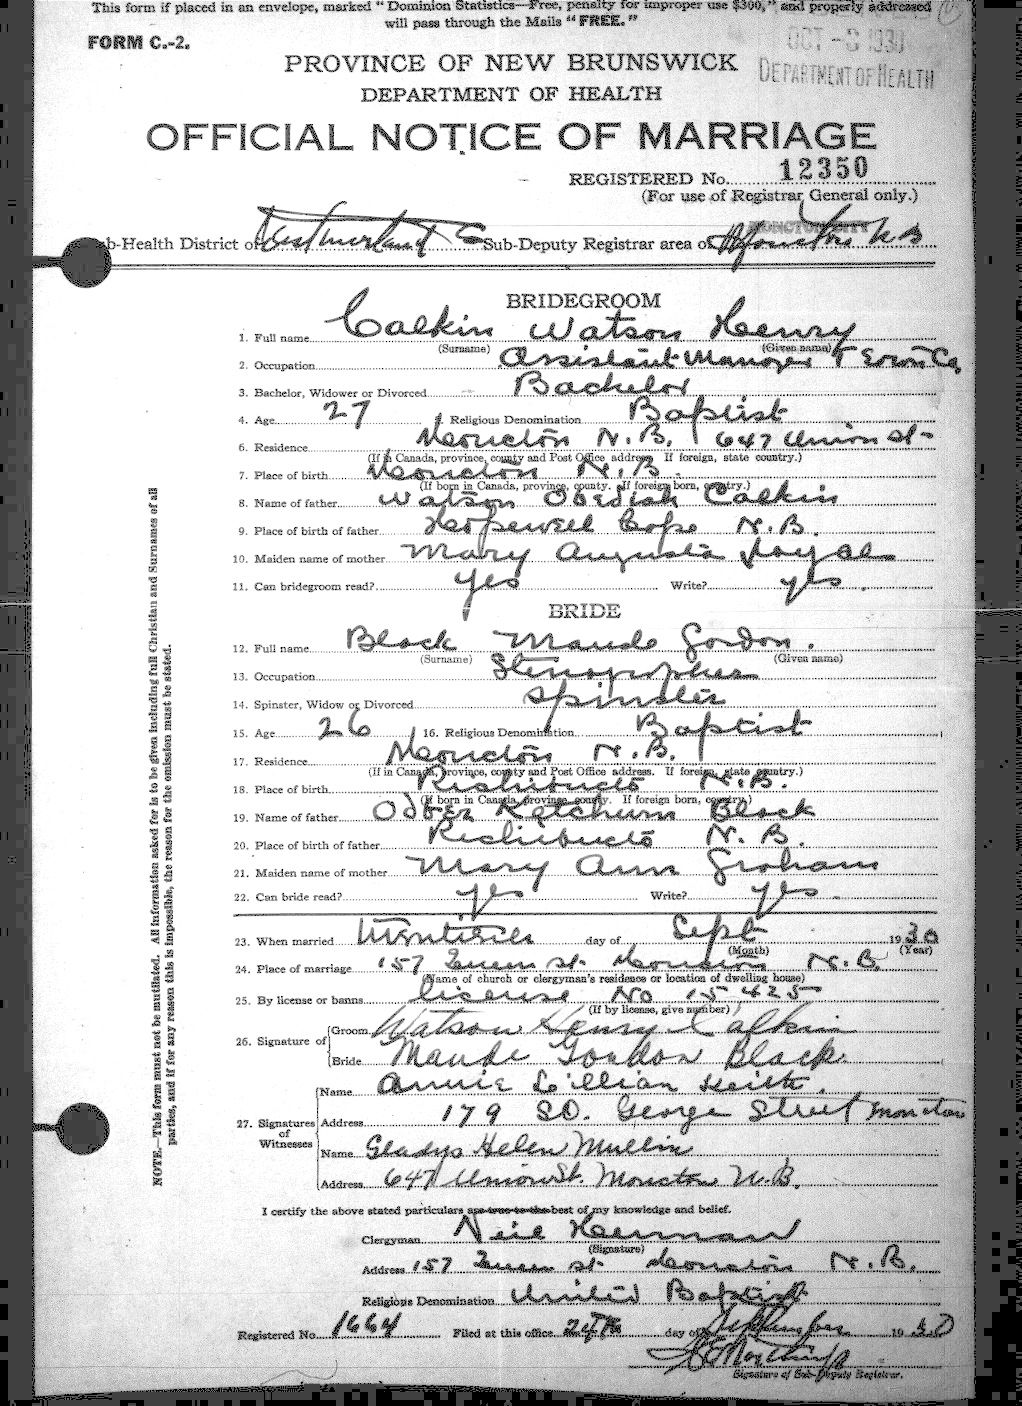 This form if placed in an envelope, marked "Dominion Statistics—Free, penalty for improper use $300," and properly addressed
will pass through the Mails "FREE."
FORM C.-2.
OCT -8 1930
DEPARTMENT OF HEALTH
PROVINCE OF NEW BRUNSWICK
DEPARTMENT OF HEALTH
OFFICIAL NOTICE OF MARRIAGE
REGISTERED No. 12350
(For use of Registrar General only.)
MONCTON CITY
b-Health District of Westmorland Co Sub-Deputy Registrar area of Moncton N B
BRIDEGROOM
1. Full name Calkin Watson Henry
(Surname) (Given name)
2. Occupation Assistant Manager T Eaton Co.
3. Bachelor, Widower or Divorced Bachelor
4. Age 27 Religious Denomination Baptist
6. Residence Moncton N.B. 647 Union St
(If in Canada, province, county and Post Office address. If foreign, state country.)
7. Place of birth Moncton N.B.
(If born in Canada, province, county. If foreign born, country.)
8. Name of father Watson Obediah Calkin
9. Place of birth of father Hopewell Cape N.B.
10. Maiden name of mother Mary Augusta
11. Can bridegroom read? yes Write? yes
BRIDE
12. Full name Black Maude Gordon.
(Surname) (Given name)
13. Occupation Stenographer
14. Spinster, Widow or Divorced Spinster
15. Age 26 16. Religious Denomination Baptist
17. Residence Moncton N.B.
(If in Canada, province, county and Post Office address. If foreign, state country.)
18. Place of birth Richibucto N.B.
(If born in Canada, province, county. If foreign born, country.)
19. Name of father Odber Ketchum Black
20. Place of birth of father Richibucto N.B.
21. Maiden name of mother Mary Ann Graham
22. Can bride read? yes Write? yes
23. When married day of Sept 1930
(Month) (Year)
24. Place of marriage 157 Queen St Moncton N.B.
(Name of church or clergyman's residence or location of dwelling house)
25. By license or banns license No 15425
(If by license, give number)
26. Signature of Groom Watson Henry Calkin
Bride Maude Gordon Black
27. Signatures of Witnesses
Name Annie Lillian Keith.
Address 179 SO. George Street Moncton
Name Gladys Helen Mullin
Address 647 Union St. Moncton N.B.
I certify the above stated particulars are true to the best of my knowledge and belief.
Clergyman Neil Herman
(Signature)
Address 157 Queen St Moncton N.B.
Religious Denomination United Baptist
Registered No 1664 Filed at this office 24th day of September 1930
Signature of Sub-Deputy Registrar.
NOTE.—This form must not be mutilated. All information asked for is to be given including full Christian and Surnames of all
parties, and if for any reason this is impossible, the reason for the omission must be stated.